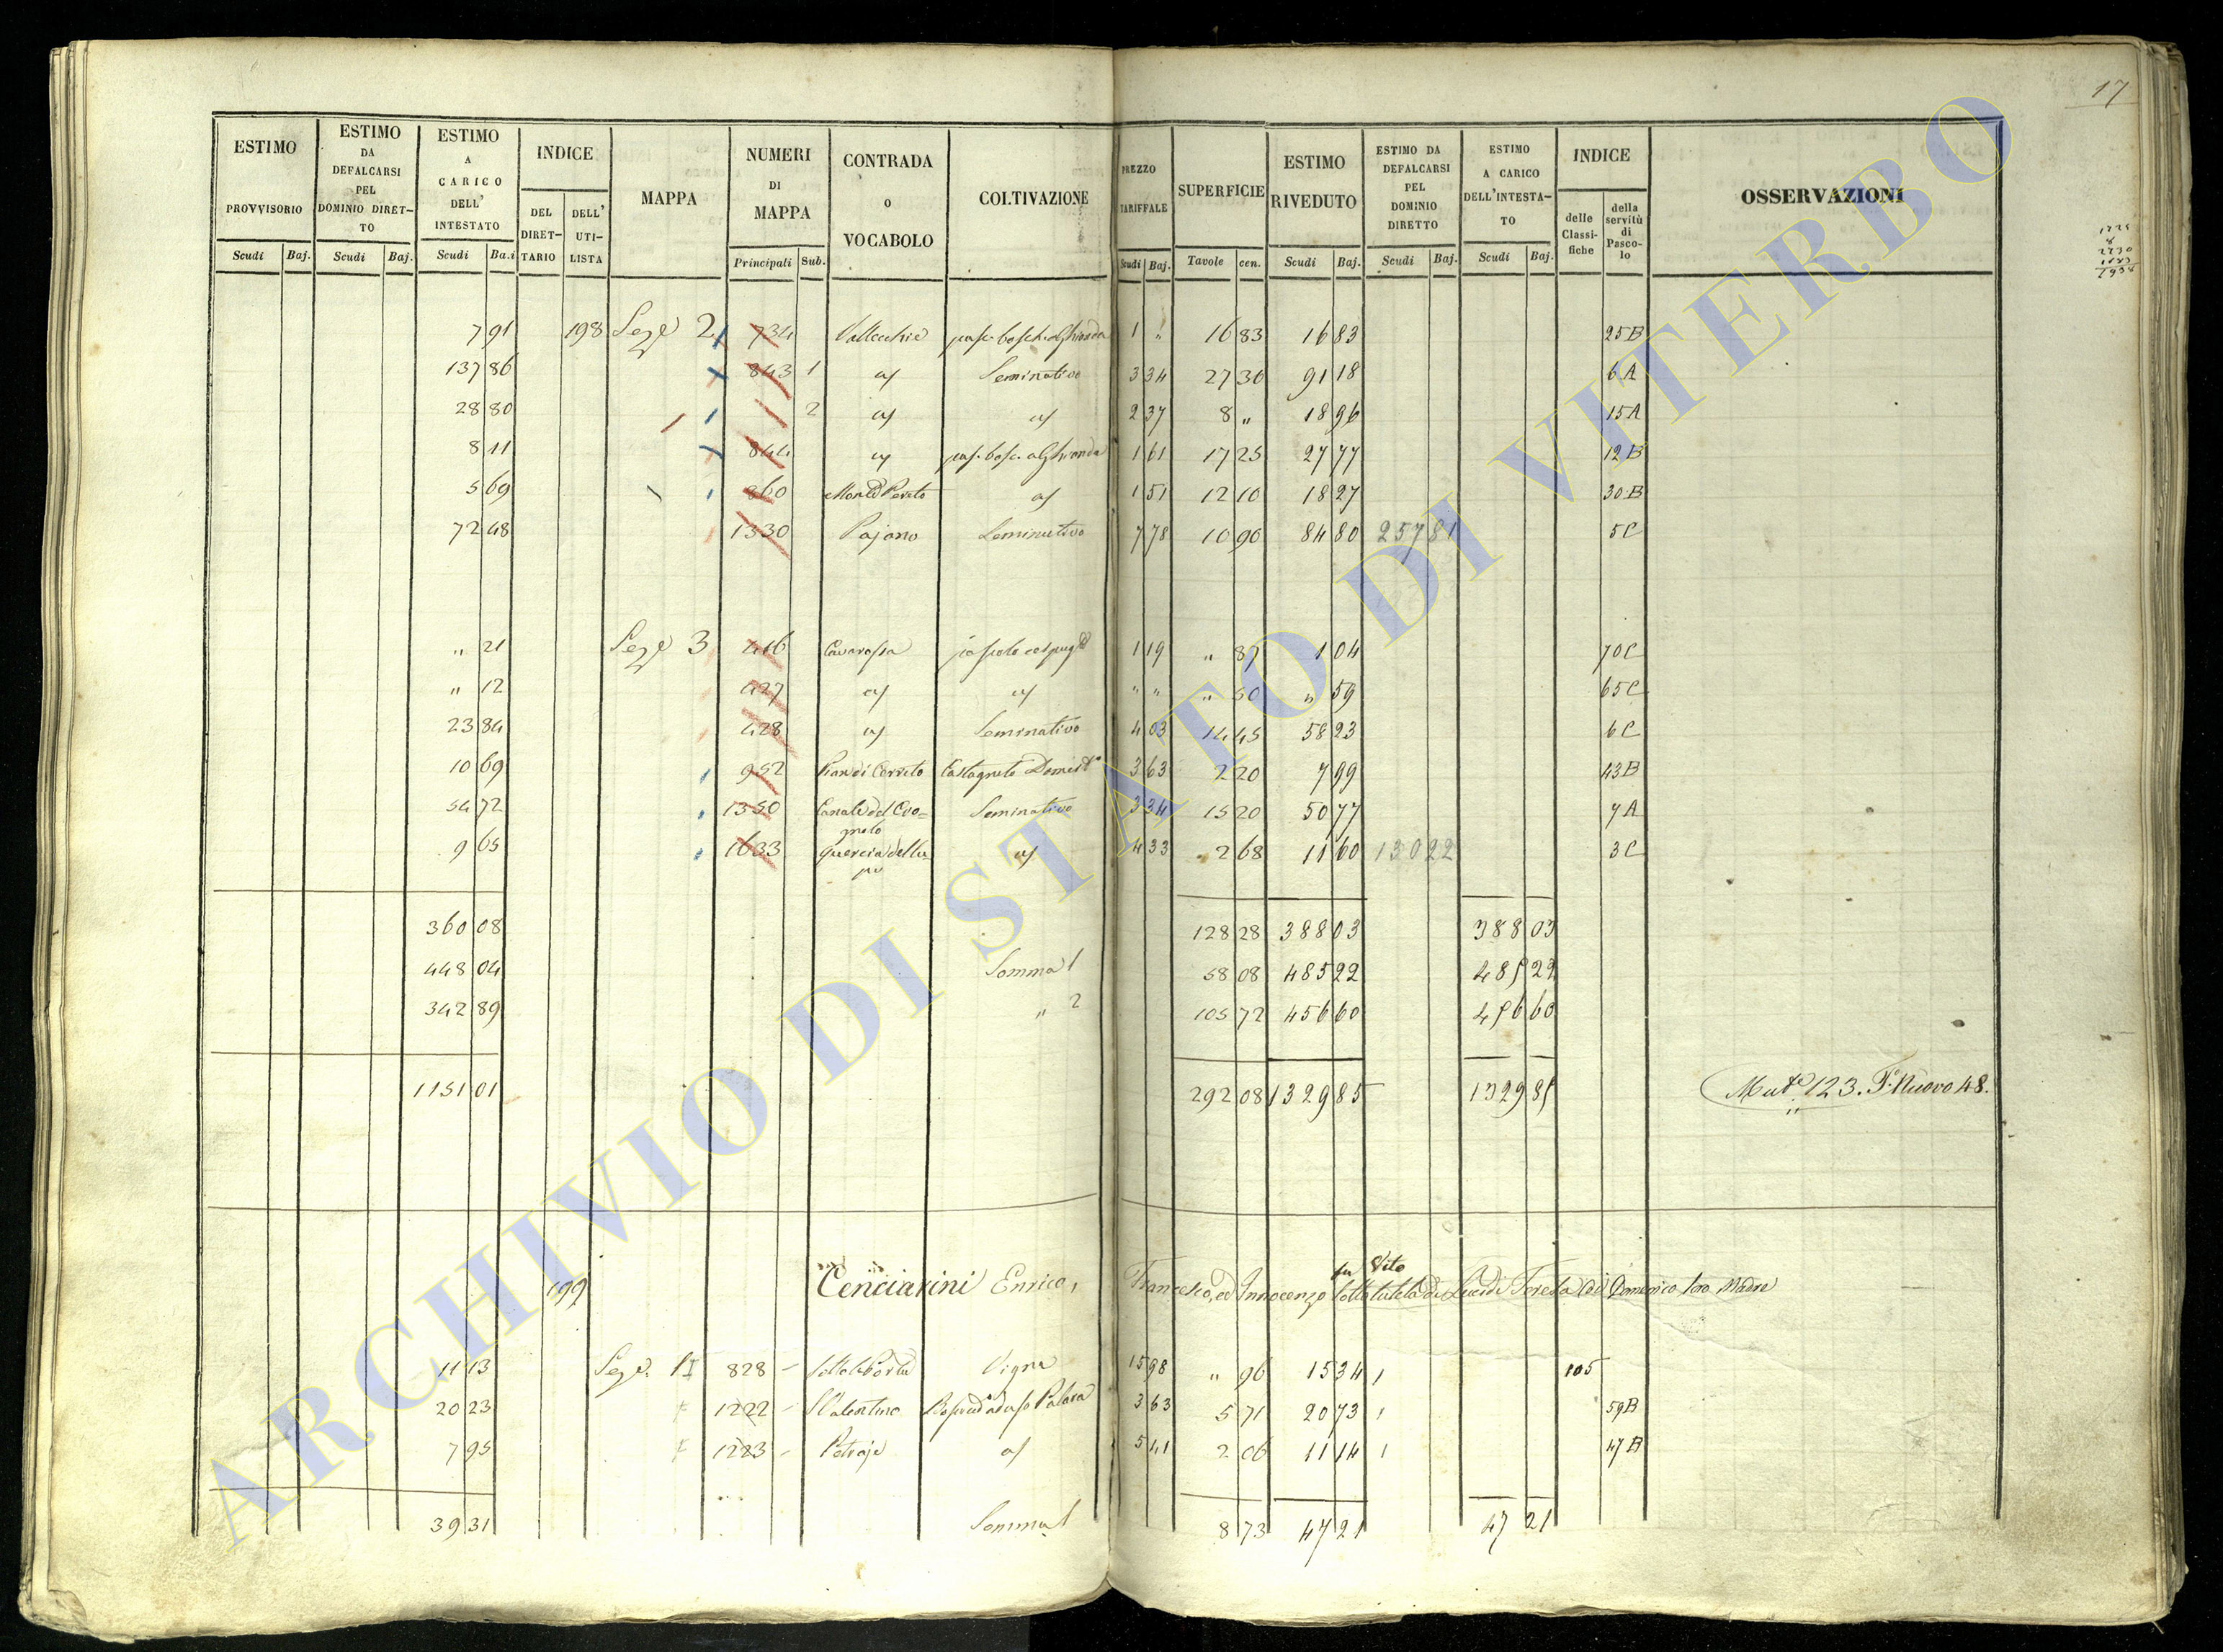 17
ESTIMO PROVVISORIO Scudi Baj.
ESTIMO DA DEFALCARSI PEL DOMINIO DIRETTO Scudi Baj.
ESTIMO A CARICO DELL' INTESTATO Scudi Ba.i
INDICE DEL DIRETTARIO DELL' UTILISTA
MAPPA
NUMERI DI MAPPA Principali Sub.
CONTRADA O VOCABOLO
COLTIVAZIONE
PREZZO TARIFFALE Scudi Baj.
SUPERFICIE Tavole cen.
ESTIMO RIVEDUTO Scudi Baj.
ESTIMO DA DEFALCARSI PEL DOMINIO DIRETTO Scudi Baj.
ESTIMO A CARICO DELL'INTESTATO Scudi Baj.
INDICE delle Classifiche della servitù di Pascolo
OSSERVAZIONI
7 91 198 Seze 2 734 Vallecchie 1 " 16 83 16 83 25B
137 86 843 1 a/ Seminativo 3 34 27 30 91 18 6A
28 80 2 a/ a/ 2 37 8 " 18 96 15A
8 11 844 a/ 1 61 17 25 27 77 12B
5 69 860 Monte Pereto a/ 1 51 12 10 18 27 30B
72 48 1330 Pajano Seminativo 7 78 10 90 84 80 257 81 5C
" 21 Seze 3 416 Cavarossa 1 19 " 87 1 04 70C
" 12 427 a/ a/ " " " 50 " 59 65C
23 84 428 a/ Seminativo 4 03 14 45 58 23 6C
10 69 952 Pian di Cerreto Castagneto Domest.o 3 63 2 20 7 99 43B
54 72 1350 Canale del Cro= Seminativo 3 34 15 20 50 77 7A
gneto
9 65 1633 Quercia della a/ 4 33 2 68 11 60 130 22 3C
360 08 128 28 388 03 388 03
448 04 Somma 1 58 08 485 22 485 22
342 89 " 2 105 72 456 60 456 60
1151 01 292 08 1329 85 1329 85 Mut.e 123. F.o Nuovo 48.
fu Vito
199 Cenciarini Enrico, Francesco, ed Innocenzo sotto tutela di Lucidi Teresa di Domenico loro Madre
11 13 Seze. 1 828 Sotto le Porta Vigna 15 98 " 96 15 34 105
20 23 1222 S Valentino 3 63 5 71 20 73 59B
7 95 1223 Petraje a/ 5 41 2 06 11 14 47B
39 31 Somma 1 8 73 47 21 47 21
ARCHIVIO DI STATO DI VITERBO